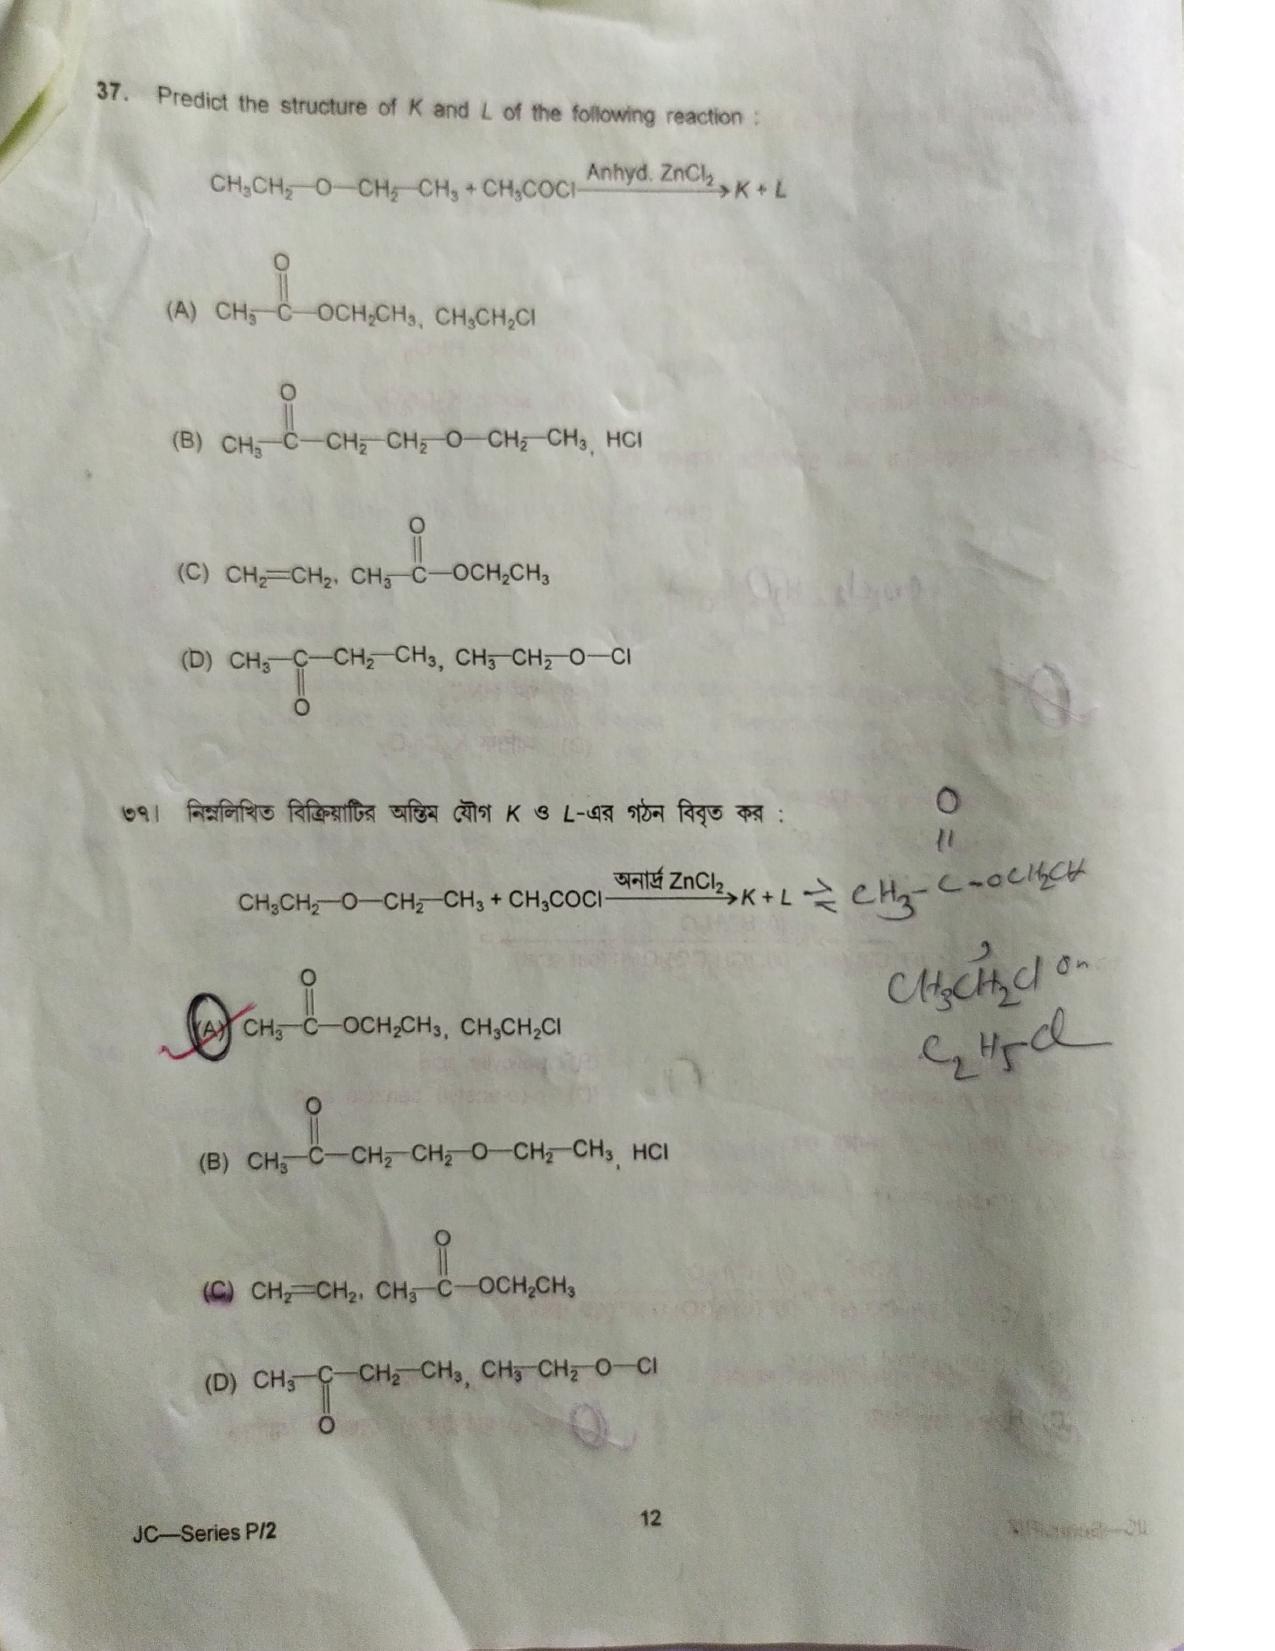 37. Predict the structure of K and L of the following reaction :
CH₃CH₂—O—CH₂—CH₃ + CH₃COCl Anhyd. ZnCl₂ → K + L
O
(A) CH₃—C—OCH₂CH₃, CH₃CH₂Cl
O
(B) CH₃—C—CH₂—CH₂—O—CH₂—CH₃, HCl
O
(C) CH₂=CH₂, CH₃—C—OCH₂CH₃
(D) CH₃—C—CH₂—CH₃, CH₃—CH₂—O—Cl
O
৩৭। নিম্নলিখিত বিক্রিয়াটির অন্তিম যৌগ K ও L-এর গঠন বিবৃত কর :
O
||
CH₃CH₂—O—CH₂—CH₃ + CH₃COCl অনার্দ্র ZnCl₂ → K + L ⇌ CH₃-C-OCH₂CH
, CH₃CH₂Cl or
C₂H₅Cl
O
(A) CH₃—C—OCH₂CH₃, CH₃CH₂Cl
O
(B) CH₃—C—CH₂—CH₂—O—CH₂—CH₃, HCl
O
(C) CH₂=CH₂, CH₃—C—OCH₂CH₃
(D) CH₃—C—CH₂—CH₃, CH₃—CH₂—O—Cl
O
JC—Series P/2
12